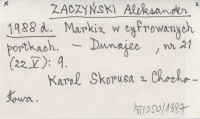 ZACZYŃSKI Aleksander
1988 d. Markiz w cyfrowanych
portkach. – Dunajec, nr 21
(22.V): 9.
Karol Skorusa z Chocho-
łowa.